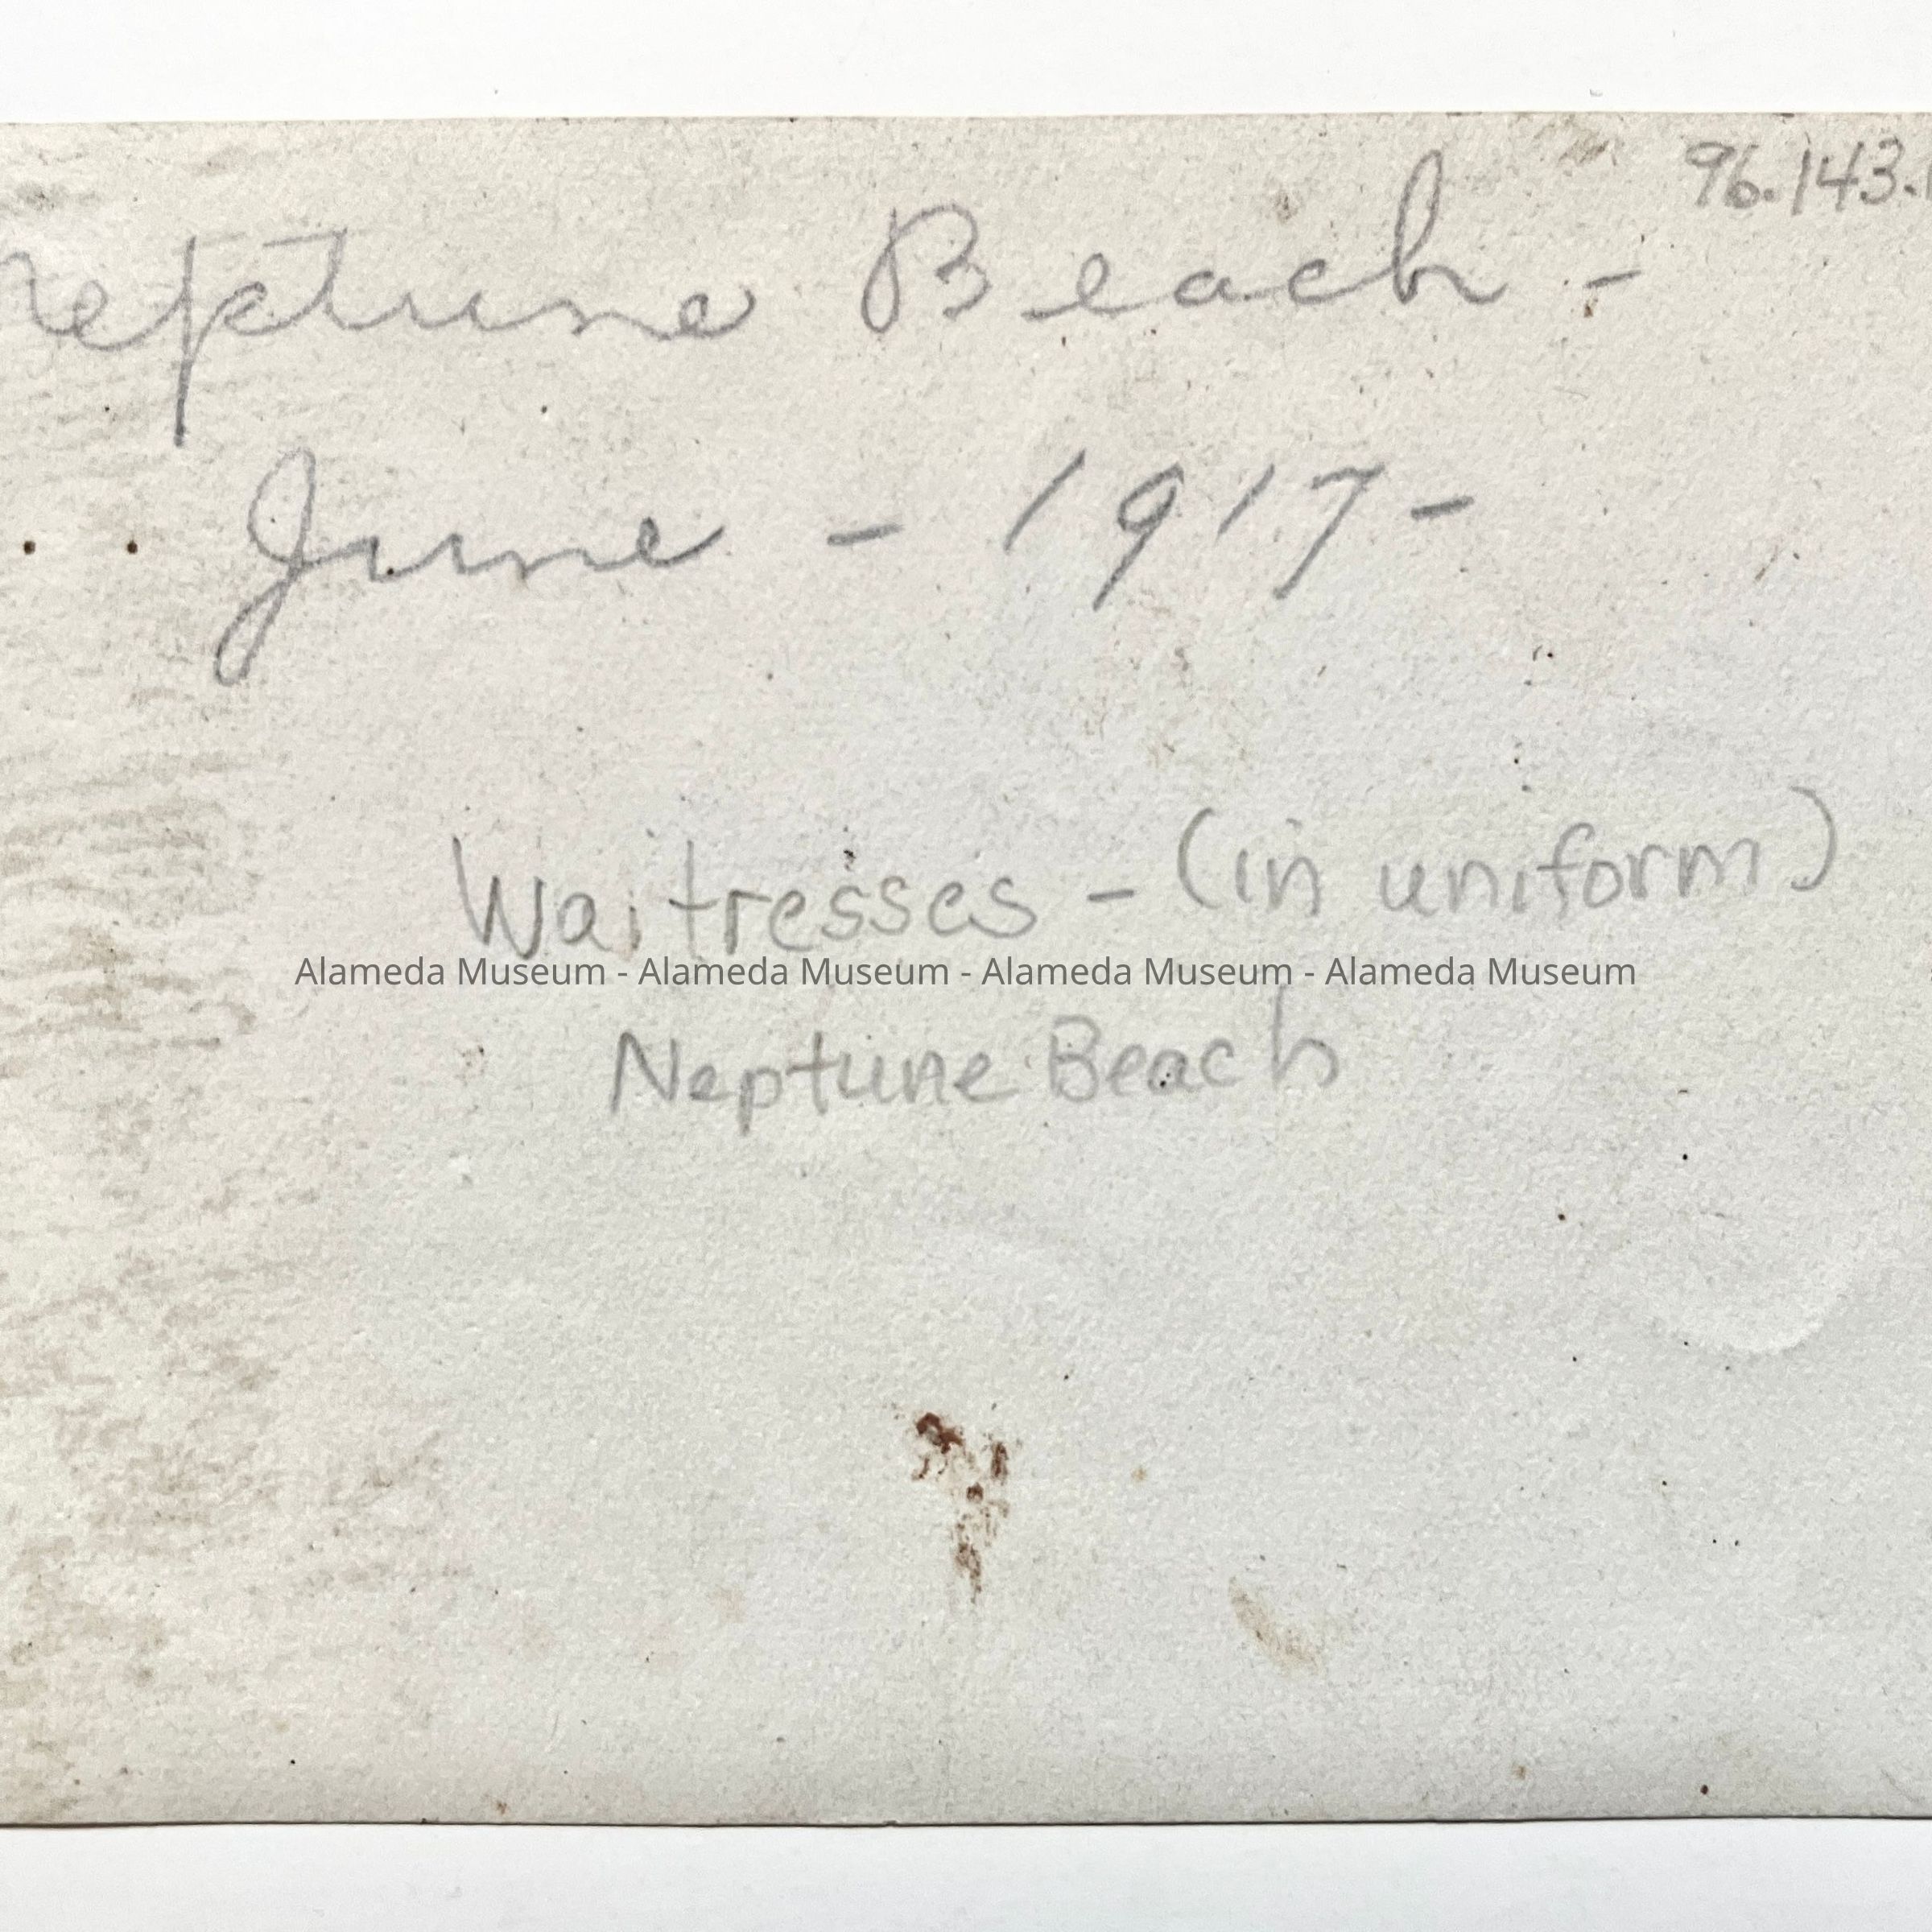 96.143.
Neptune Beach -
June - 1917 -
Waitresses - (in uniform)
Alameda Museum - Alameda Museum - Alameda Museum - Alameda Museum
Neptune Beach